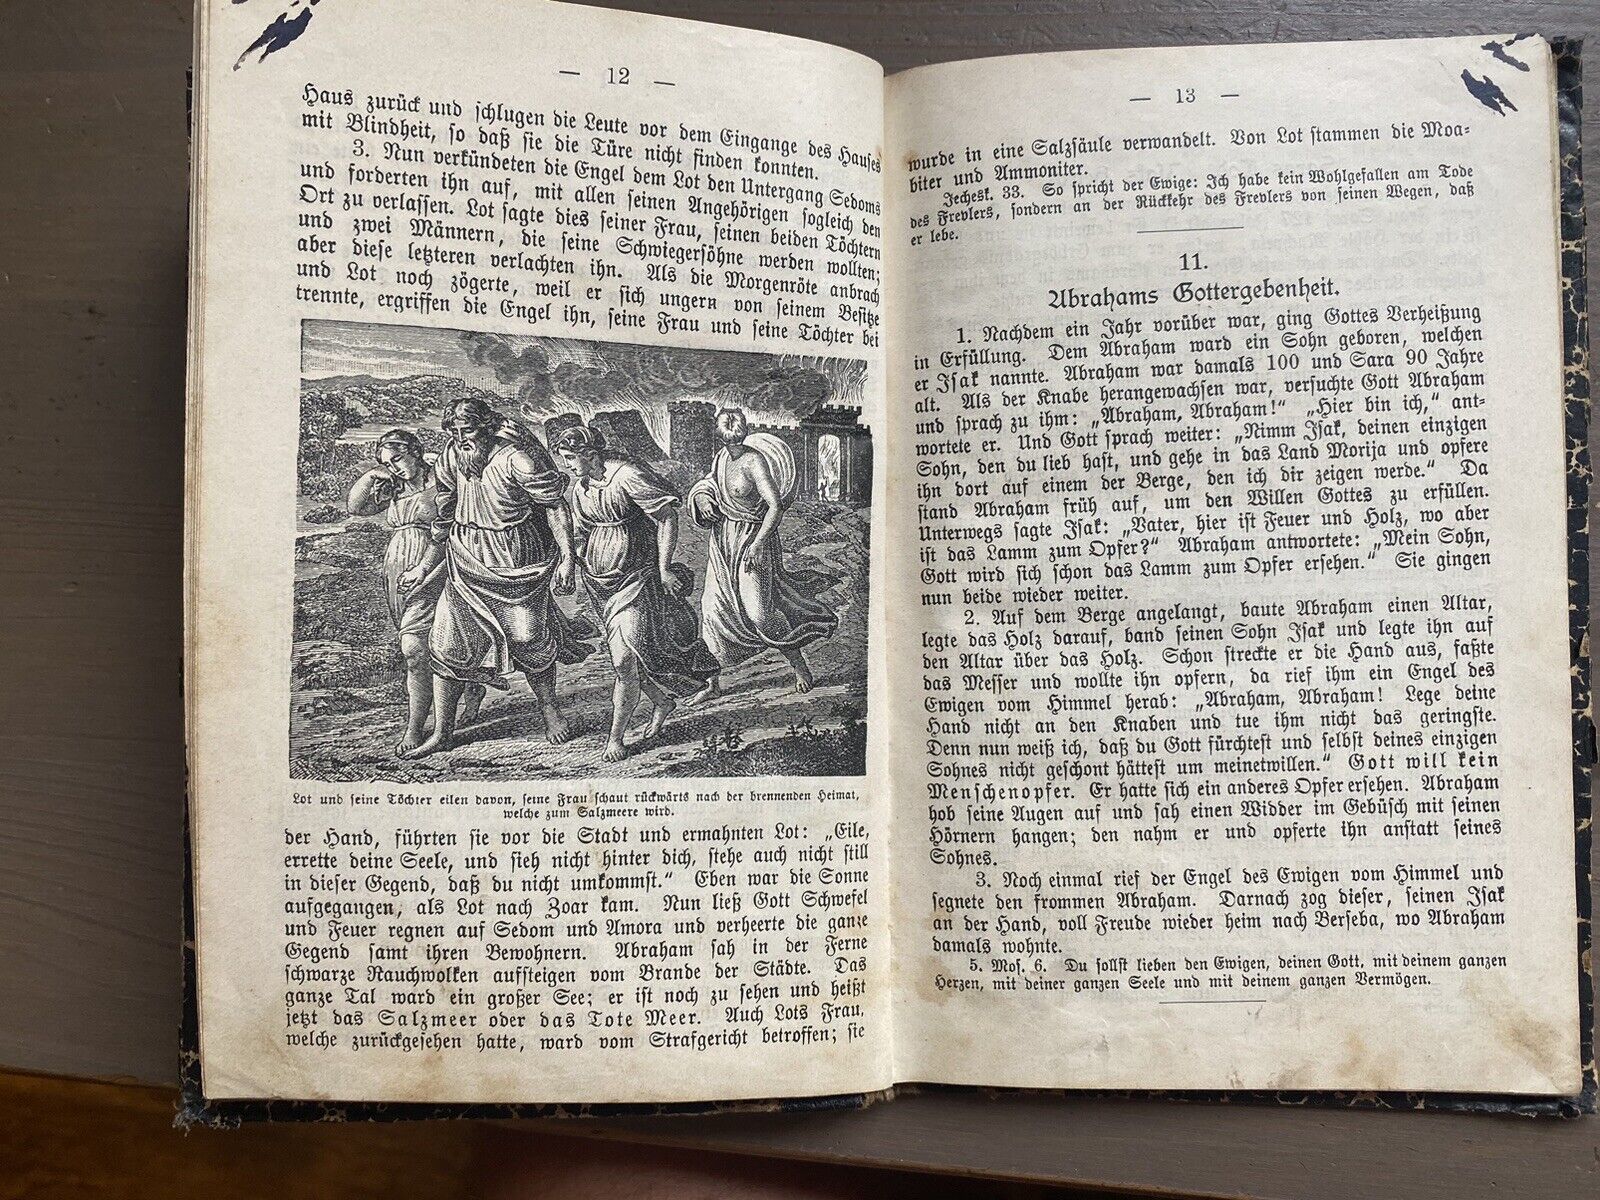 — 12 —
Haus zurück und schlugen die Leute vor dem Eingange des Hauses
mit Blindheit, so daß sie die Türe nicht finden konnten.
3. Nun verkündeten die Engel dem Lot den Untergang Sedoms
und forderten ihn auf, mit allen seinen Angehörigen sogleich den
Ort zu verlassen. Lot sagte dies seiner Frau, seinen beiden Töchtern
und zwei Männern, die seine Schwiegersöhne werden wollten;
aber diese letzteren verlachten ihn. Als die Morgenröte anbrach
und Lot noch zögerte, weil er sich ungern von seinem Besitze
trennte, ergriffen die Engel ihn, seine Frau und seine Töchter bei
Lot und seine Töchter eilen davon, seine Frau schaut rückwärts nach der brennenden Heimat,
welche zum Salzmeere wird.
der Hand, führten sie vor die Stadt und ermahnten Lot: „Eile,
errette deine Seele, und sieh nicht hinter dich, stehe auch nicht still
in dieser Gegend, daß du nicht umkommst.“ Eben war die Sonne
aufgegangen, als Lot nach Zoar kam. Nun ließ Gott Schwefel
und Feuer regnen auf Sedom und Amora und verheerte die ganze
Gegend samt ihren Bewohnern. Abraham sah in der Ferne
schwarze Rauchwolken aufsteigen vom Brande der Städte. Das
ganze Tal ward ein großer See; er ist noch zu sehen und heißt
jetzt das Salzmeer oder das Tote Meer. Auch Lots Frau,
welche zurückgesehen hatte, ward vom Strafgericht betroffen; sie
— 13 —
wurde in eine Salzsäule verwandelt. Von Lot stammen die Moa-
biter und Ammoniter.
Jechesk. 33. So spricht der Ewige: Ich habe kein Wohlgefallen am Tode
des Frevlers, sondern an der Rückkehr des Frevlers von seinen Wegen, daß
er lebe.
11.
Abrahams Gottergebenheit.
1. Nachdem ein Jahr vorüber war, ging Gottes Verheißung
in Erfüllung. Dem Abraham ward ein Sohn geboren, welchen
er Isak nannte. Abraham war damals 100 und Sara 90 Jahre
alt. Als der Knabe herangewachsen war, versuchte Gott Abraham
und sprach zu ihm: „Abraham, Abraham!“ „Hier bin ich,“ ant-
wortete er. Und Gott sprach weiter: „Nimm Isak, deinen einzigen
Sohn, den du lieb hast, und gehe in das Land Morija und opfere
ihn dort auf einem der Berge, den ich dir zeigen werde.“ Da
stand Abraham früh auf, um den Willen Gottes zu erfüllen.
Unterwegs sagte Isak: „Vater, hier ist Feuer und Holz, wo aber
ist das Lamm zum Opfer?“ Abraham antwortete: „Mein Sohn,
Gott wird sich schon das Lamm zum Opfer ersehen.“ Sie gingen
nun beide wieder weiter.
2. Auf dem Berge angelangt, baute Abraham einen Altar,
legte das Holz darauf, band seinen Sohn Isak und legte ihn auf
den Altar über das Holz. Schon streckte er die Hand aus, faßte
das Messer und wollte ihn opfern, da rief ihm ein Engel des
Ewigen vom Himmel herab: „Abraham, Abraham! Lege deine
Hand nicht an den Knaben und tue ihm nicht das geringste.
Denn nun weiß ich, daß du Gott fürchtest und selbst deines einzigen
Sohnes nicht geschont hättest um meinetwillen.“ Gott will kein
Menschenopfer. Er hatte sich ein anderes Opfer ersehen. Abraham
hob seine Augen auf und sah einen Widder im Gebüsch mit seinen
Hörnern hangen; den nahm er und opferte ihn anstatt seines
Sohnes.
3. Noch einmal rief der Engel des Ewigen vom Himmel und
segnete den frommen Abraham. Darnach zog dieser, seinen Isak
an der Hand, voll Freude wieder heim nach Berseba, wo Abraham
damals wohnte.
5. Mos. 6. Du sollst lieben den Ewigen, deinen Gott, mit deinem ganzen
Herzen, mit deiner ganzen Seele und mit deinem ganzen Vermögen.